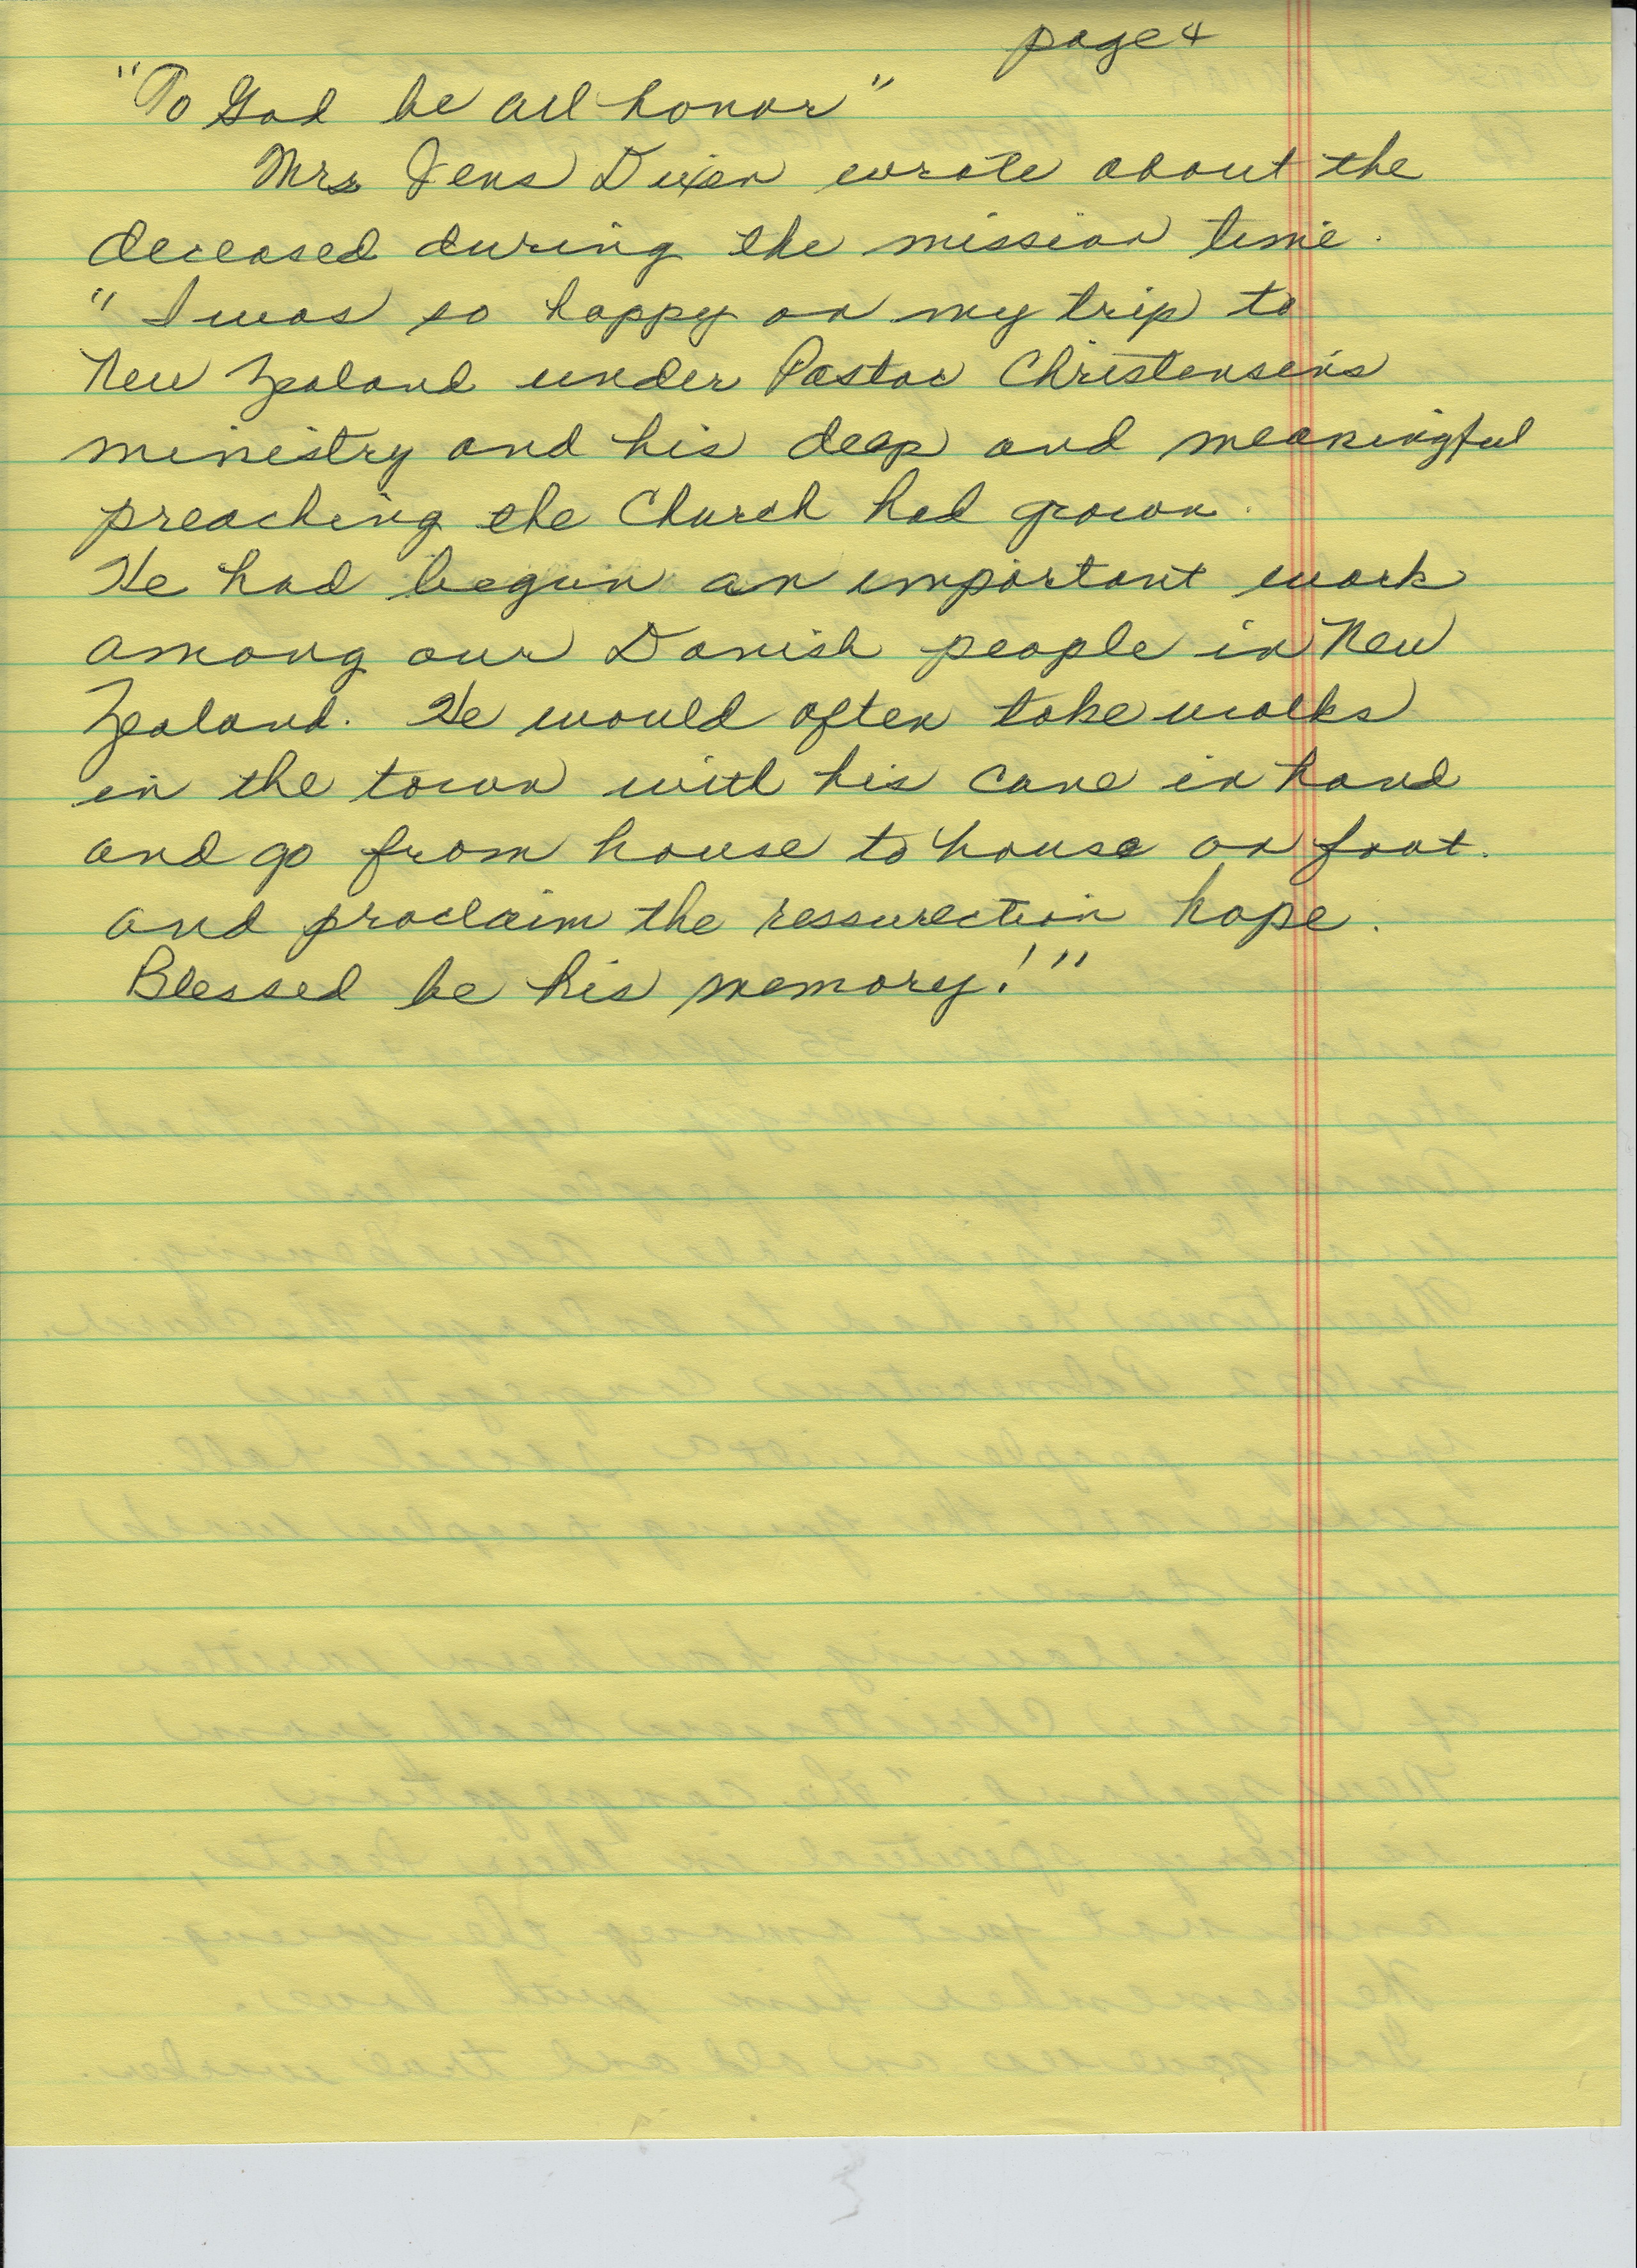 page 4
"To God be all honor"
Mrs Jens Dixen wrote about the
deceased during the mission time.
"I was so happy on my trip to
New Zealand under Pastor Christensen's
ministry and his deep and meaningful
preaching the Church had grown.
He had begun an important work
among our Danish people in New
Zealand. He would often take walks
in the town with his cane in hand
and go from house to house on foot.
and proclaim the ressurection hope.
Blessed be his memory!"